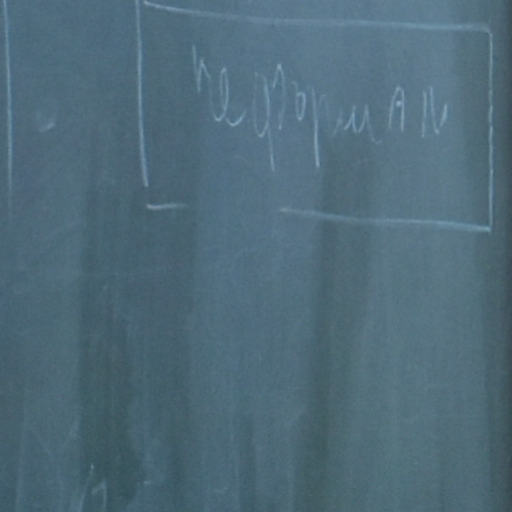 неформАл